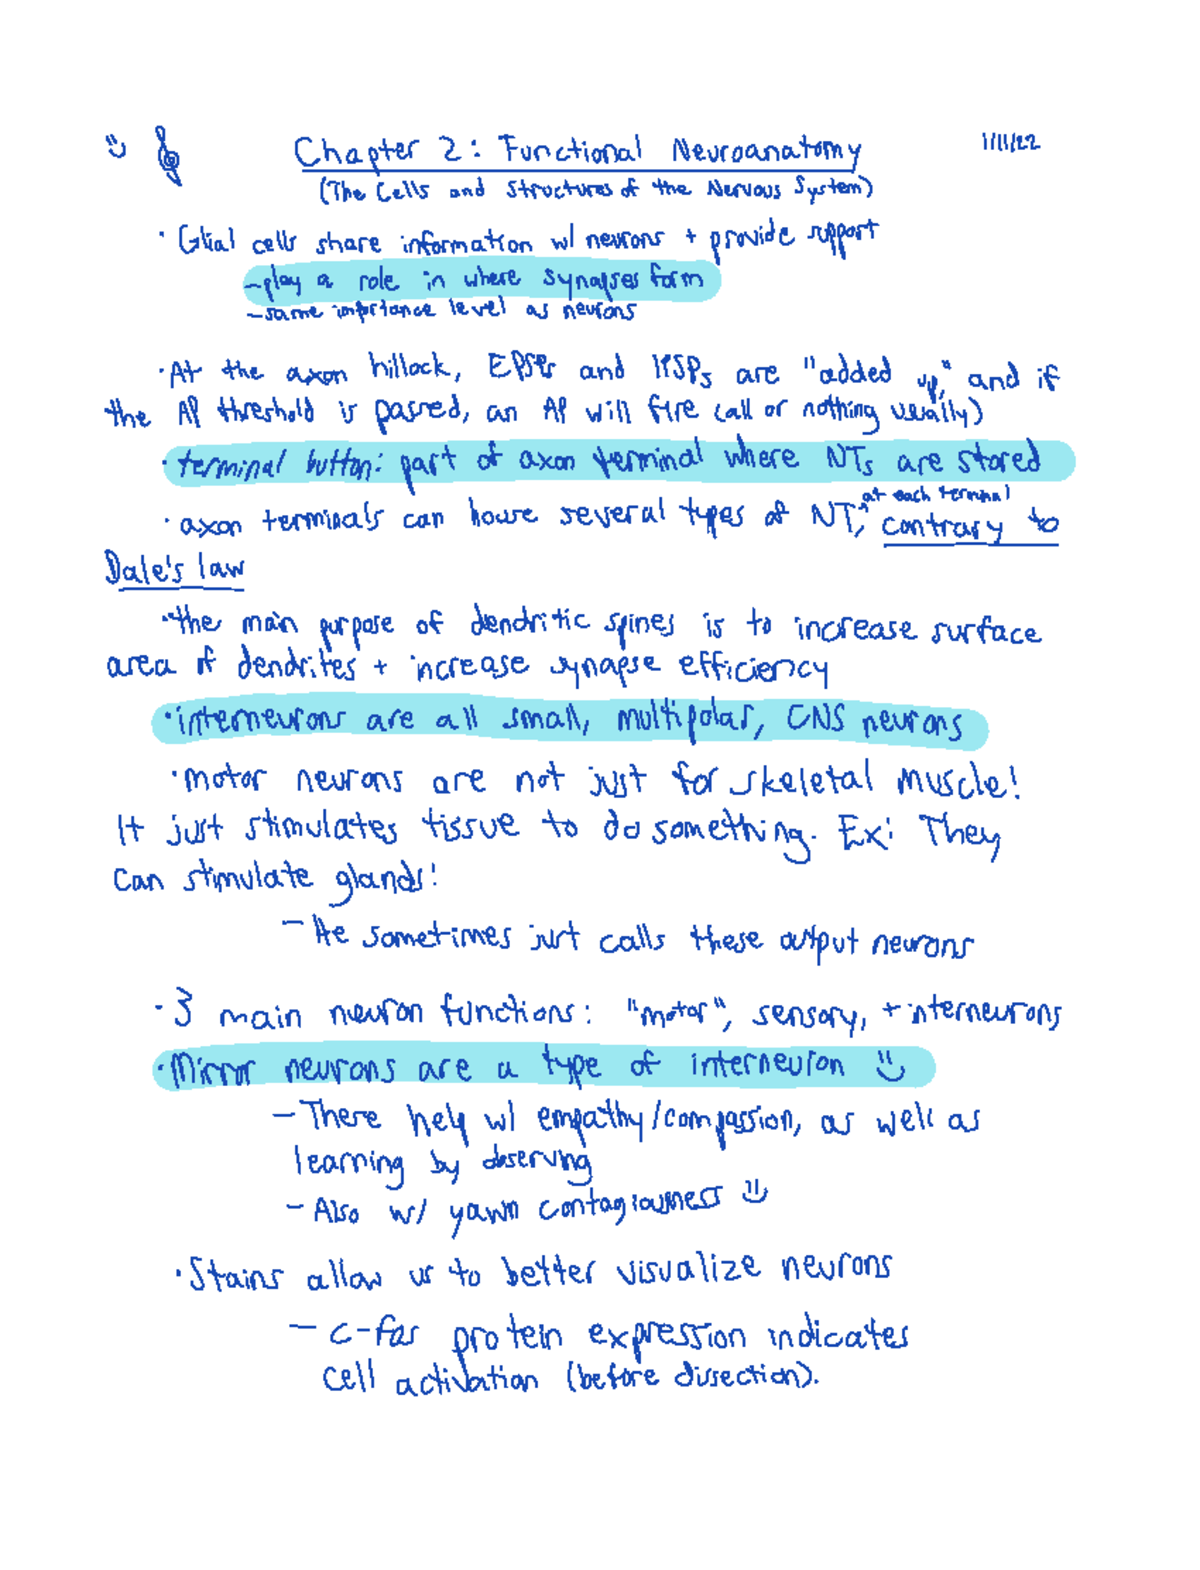 Chapter 2: Functional Neuroanatomy
1/11/22
(The Cells and Structures of the Nervous System)
· Glial cells share information w/ neurons + provide support
-play a role in where synapses form
-same importance level as neurons
·At the axon hillock, EPSPs and IPSPs are "added up," and if
the AP threshold is passed, an AP will fire (all or nothing usually)
·terminal button: part of axon terminal where NTs are stored
at each terminal
·axon terminals can house several types of NT, contrary to
Dale's law
·the main purpose of dendritic spines is to increase surface
area of dendrites + increase synapse efficiency
·interneurons are all small, multipolar, CNS neurons
·motor neurons are not just for skeletal muscle!
It just stimulates tissue to do something. Ex: They
can stimulate glands!
- He sometimes just calls these output neurons
·3 main neuron functions: "motor", sensory, + interneurons
·Mirror neurons are a type of interneuron
- There help w/ empathy/compassion, as well as
learning by observing
- Also w/ yawn contagiousness
·Stains allow us to better visualize neurons
- c-fos protein expression indicates
cell activation (before dissection).